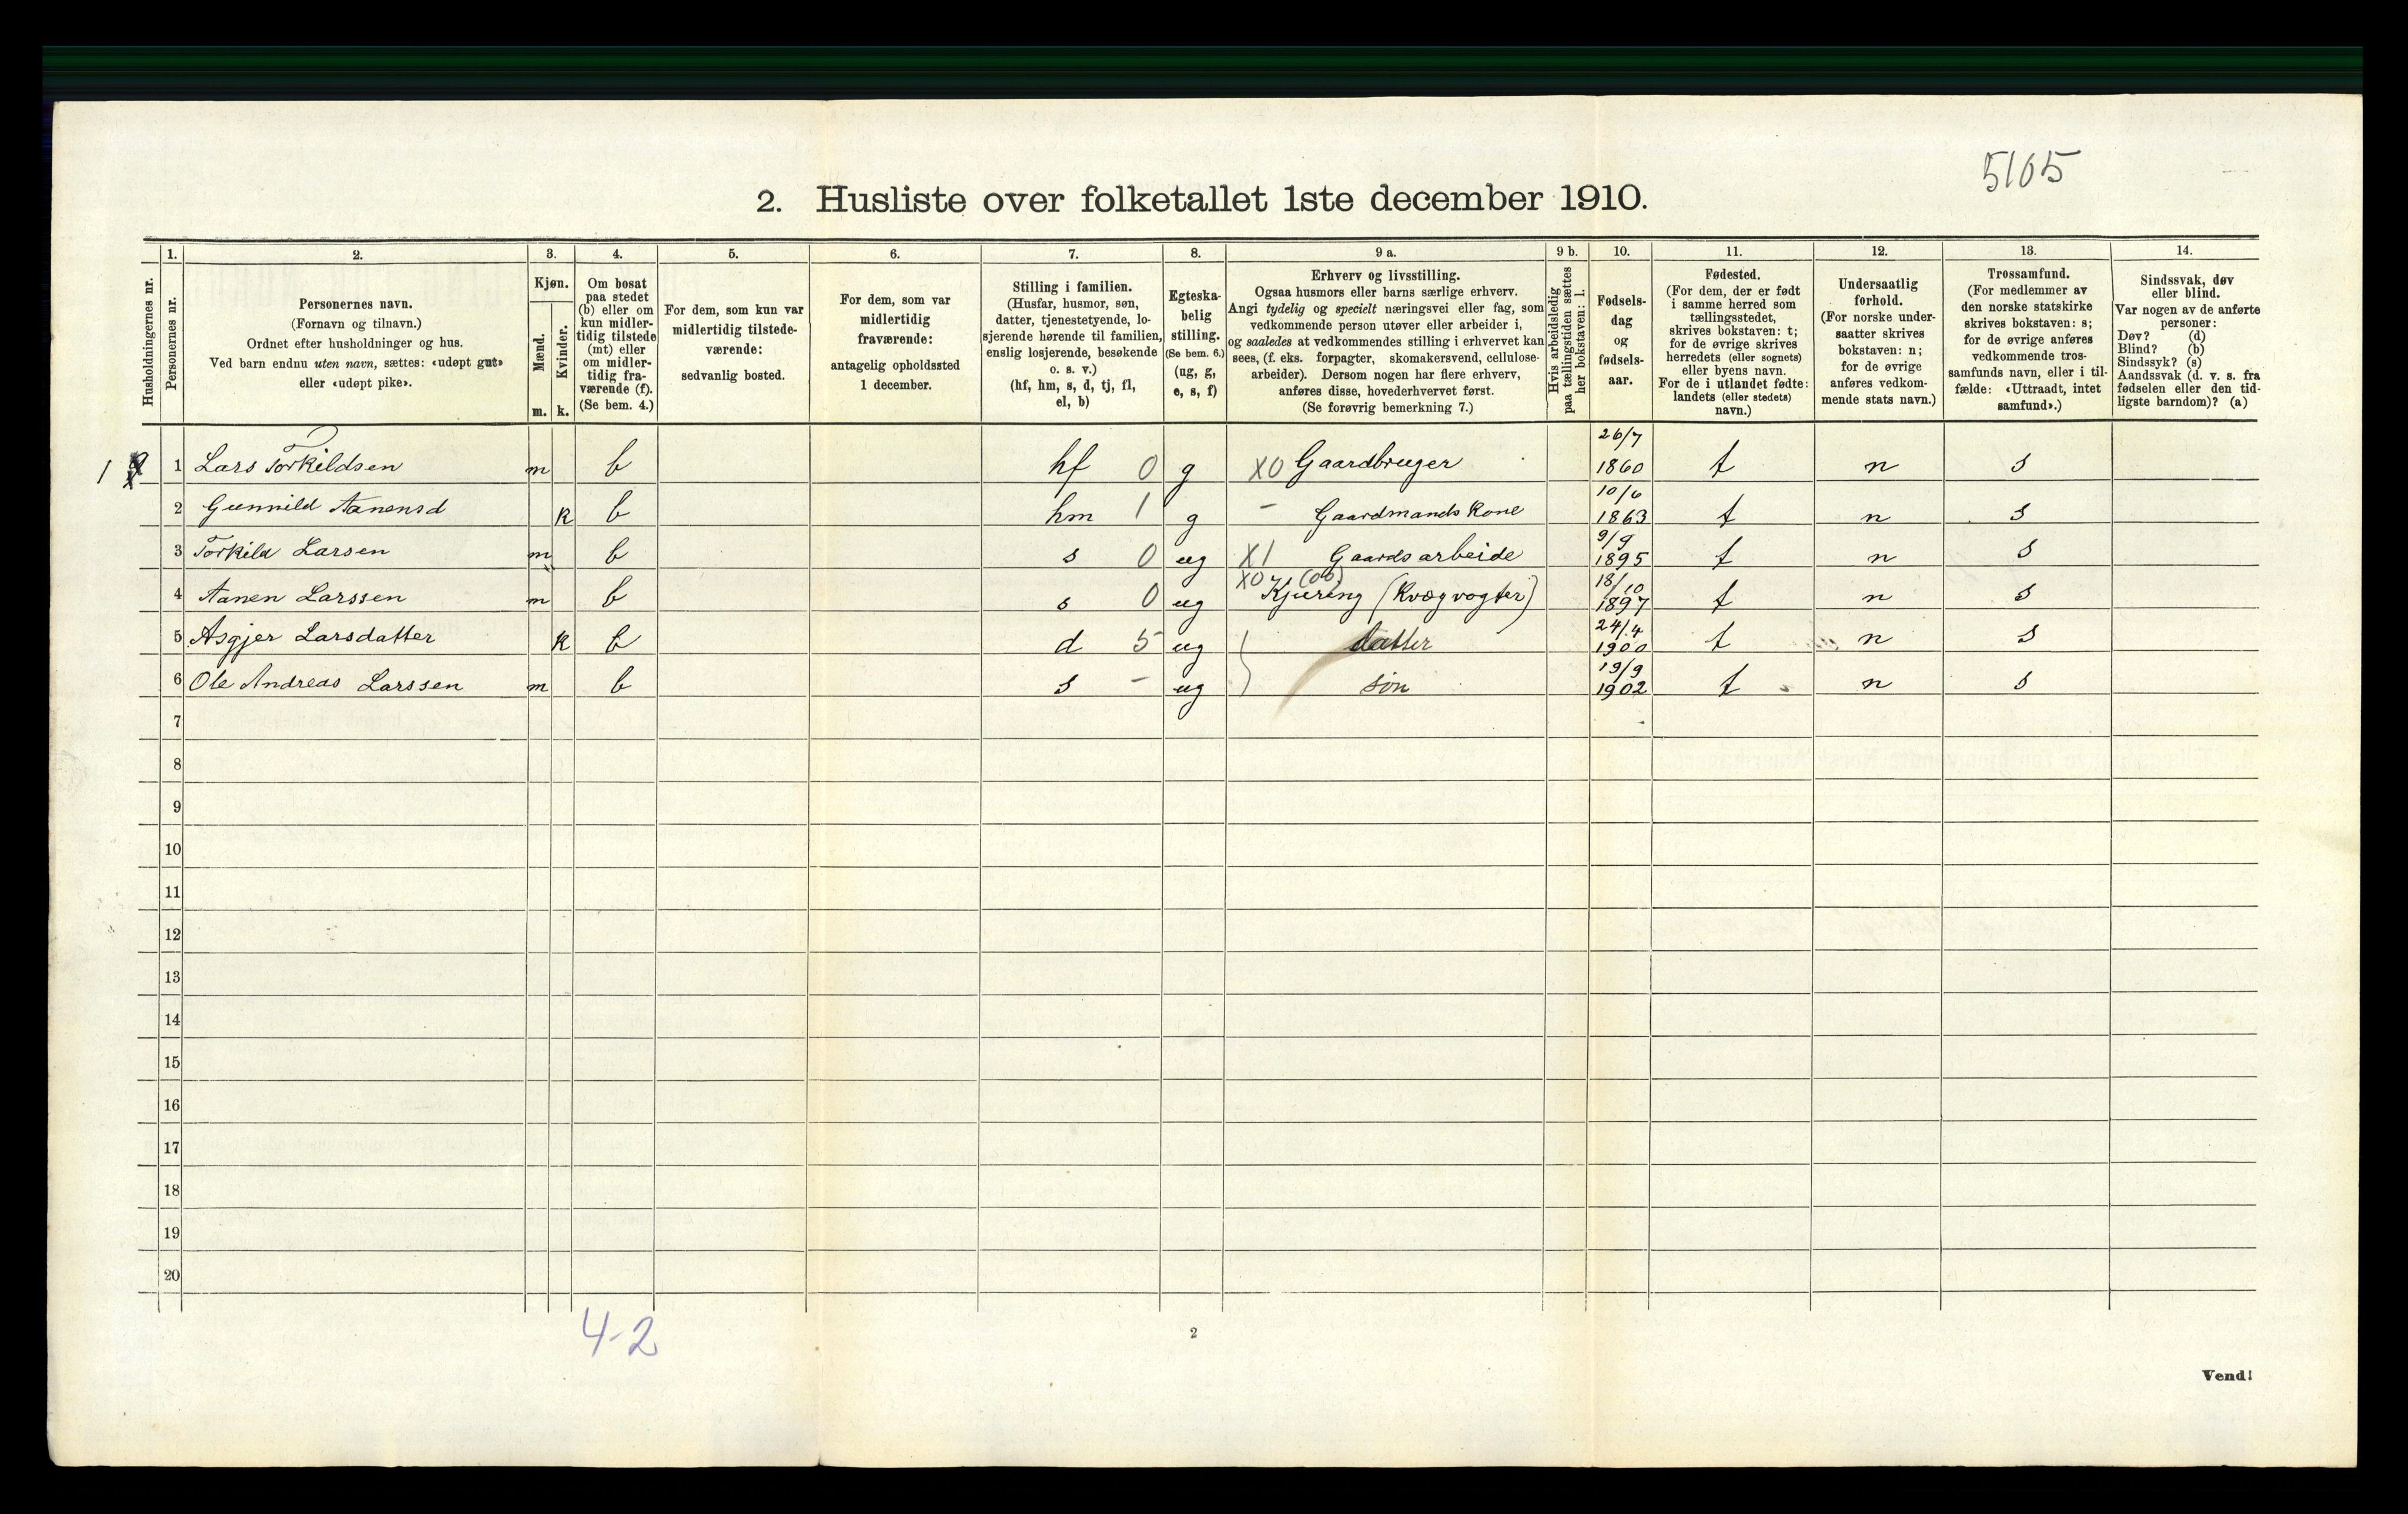 5105
2. Husliste over folketallet 1ste december 1910.
Husholdningernes nr.
1.
Personernes nr.
2.
Personernes navn.
(Fornavn og tilnavn.)
Ordnet efter husholdninger og hus.
Ved barn endnu uten navn, sættes: «udøpt gut»
eller «udøpt pike».
3.
Kjøn.
Mænd.
Kvinder.
m. k.
4.
Om bosat
paa stedet
(b) eller om
kun midler-
tidig tilstede
(mt) eller
om midler-
tidig fra-
værende (f).
(Se bem. 4.)
5.
For dem, som kun var
midlertidig tilstede-
værende:
sedvanlig bosted.
6.
For dem, som var
midlertidig
fraværende:
antagelig opholdssted
1 december.
7.
Stilling i familien.
(Husfar, husmor, søn,
datter, tjenestetyende, lo-
sjerende hørende til familien,
enslig losjerende, besøkende
o. s. v.)
(hf, hm, s, d, tj, fl,
el, b)
8.
Egteska-
belig
stilling.
(Se bem. 6.)
(ug, g,
e, s, f)
9 a.
Erhverv og livsstilling.
Ogsaa husmors eller barns særlige erhverv.
Angi tydelig og specielt næringsvei eller fag, som
vedkommende person utøver eller arbeider i,
og saaledes at vedkommendes stilling i erhvervet kan
sees, (f. eks. forpagter, skomakersvend, cellulose-
arbeider). Dersom nogen har flere erhverv,
anføres disse, hovederhvervet først.
(Se forøvrig bemerkning 7.)
9 b.
Hvis arbeidsledig
paa tællingstiden sættes
her bokstaven: l.
10.
Fødsels-
dag
og
fødsels-
aar.
11.
Fødested.
(For dem, der er født
i samme herred som
tællingsstedet,
skrives bokstaven: t;
for de øvrige skrives
herredets (eller sognets)
eller byens navn.
For de i utlandet fødte:
landets (eller stedets)
navn.)
12.
Undersaatlig
forhold.
(For norske under-
saatter skrives
bokstaven: n;
for de øvrige
anføres vedkom-
mende stats navn.)
13.
Trossamfund.
(For medlemmer av
den norske statskirke
skrives bokstaven: s;
for de øvrige anføres
vedkommende tros-
samfunds navn, eller i til-
fælde: «Uttraadt, intet
samfund».)
14.
Sindssvak, døv
eller blind.
Var nogen av de anførte
personer:
Døv? (d)
Blind? (b)
Sindssyk? (s)
Aandssvak (d. v. s. fra
fødselen eller den tid-
ligste barndom)? (a)
1 1 Lars Torkildsen m b hf 0 g X0 Gaardbruger 26/7 1860 t n s
2 Gunnild Aanensd k b hm 1 g - Gaardmands Kone 10/6 1863 t n s
3 Torkild Larsen m b s 0 ug X1 Gaards arbeide 9/9 1895 t n s
4 Aanen Larssen m b s 0 ug X0 Kjuring (Kvægvogter) 18/10 1897 t n s
5 Asgjer Larsdatter k b d 5 ug datter 24/4 1900 t n s
6 Ole Andreas Larssen m b s - ug søn 19/9 1902 t n s
7
8
9
10
11
12
13
14
15
16
17
18
19
20
4-2
2
Vend!